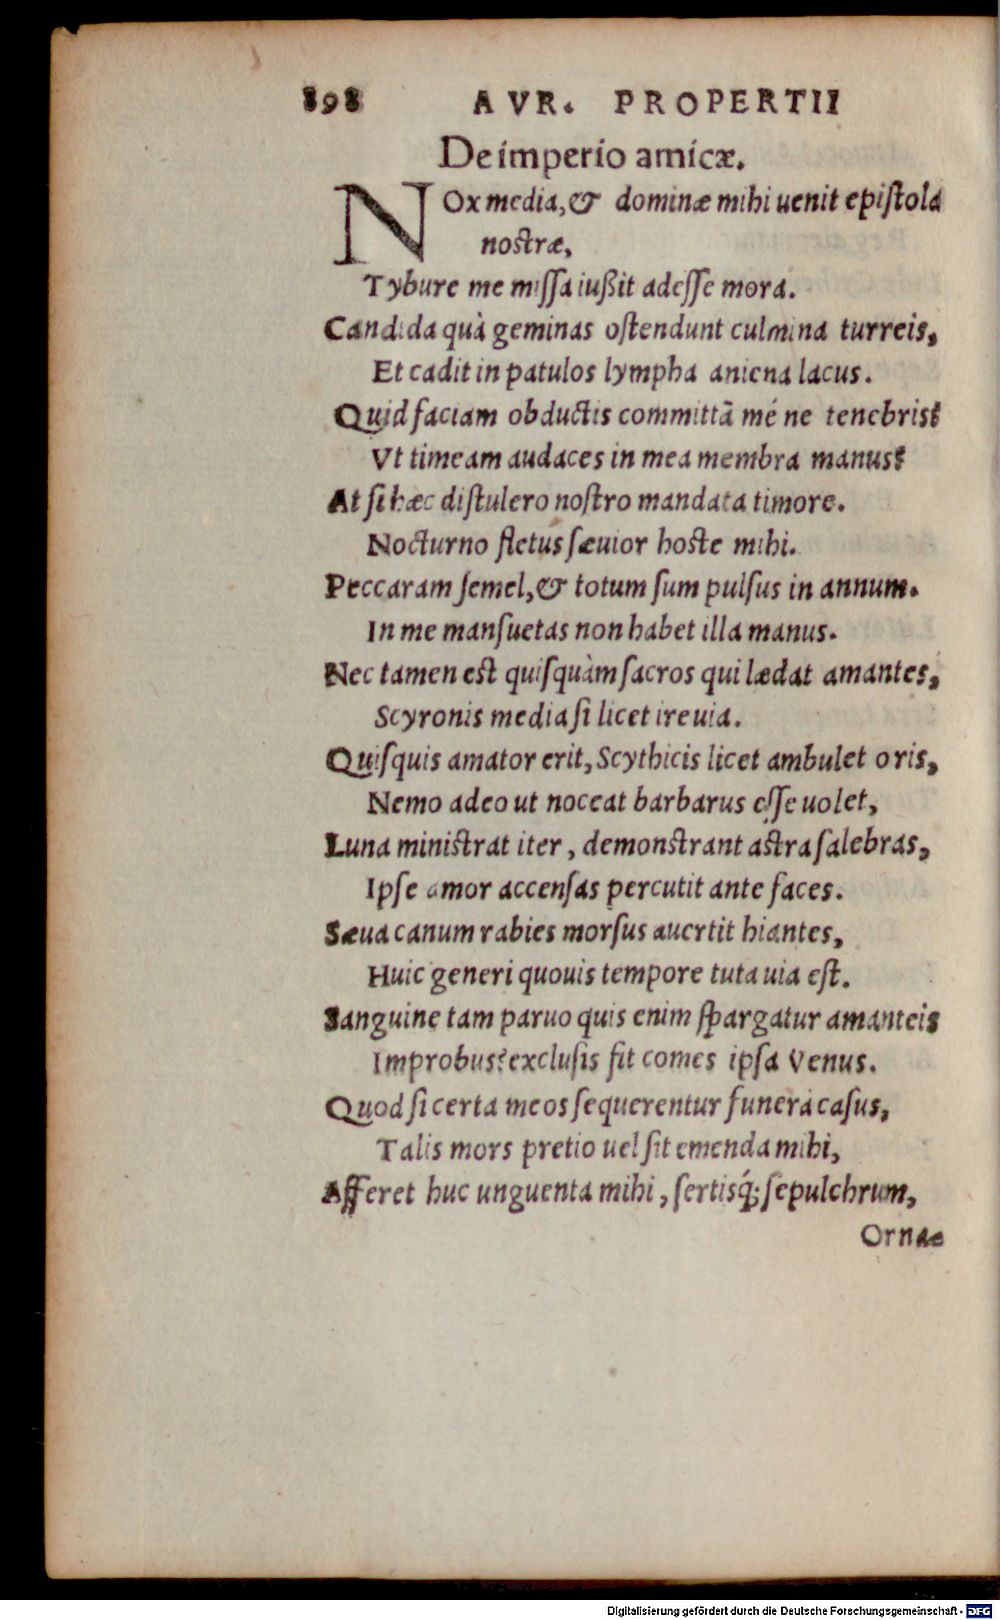 898 AVR. PROPERTII
De imperio amicæ.
NOx media, & dominæ mihi uenit epiſtola
noſtræ,
Tybure me miſſa iußit adeſſe mora.
Candida quà geminas oſtendunt culmina turreis,
Et cadit in patulos lympha aniena lacus.
Quid faciam obductis committã mé ne tenebris?
Vt timeam audaces in mea membra manus?
At ſi hæc diſtulero noſtro mandata timore.
Nocturno fletus ſæuior hoſte mihi.
Peccaram ſemel, & totum ſum pulſus in annum.
In me manſuetas non habet illa manus.
Nec tamen eſt quiſquàm ſacros qui lædat amantes,
Scyronis media ſi licet ire uia.
Quiſquis amator erit, Scythicis licet ambulet oris,
Nemo adeo ut noceat barbarus eſſe uolet,
Luna miniſtrat iter, demonſtrant aſtra ſalebras,
Ipſe amor accenſas percutit ante faces.
Sæua canum rabies morſus auertit hiantes,
Huic generi quouis tempore tuta uia eſt.
Sanguine tam paruo quis enim ſpargatur amanteis
Improbus? excluſis fit comes ipſa Venus.
Quod ſi certa meos ſequerentur funera caſus,
Talis mors pretio uel ſit emenda mihi,
Afferet huc unguenta mihi, ſertisq́; ſepulchrum,
Orna-
Digitalisierung gefördert durch die Deutsche Forschungsgemeinschaft - DFG